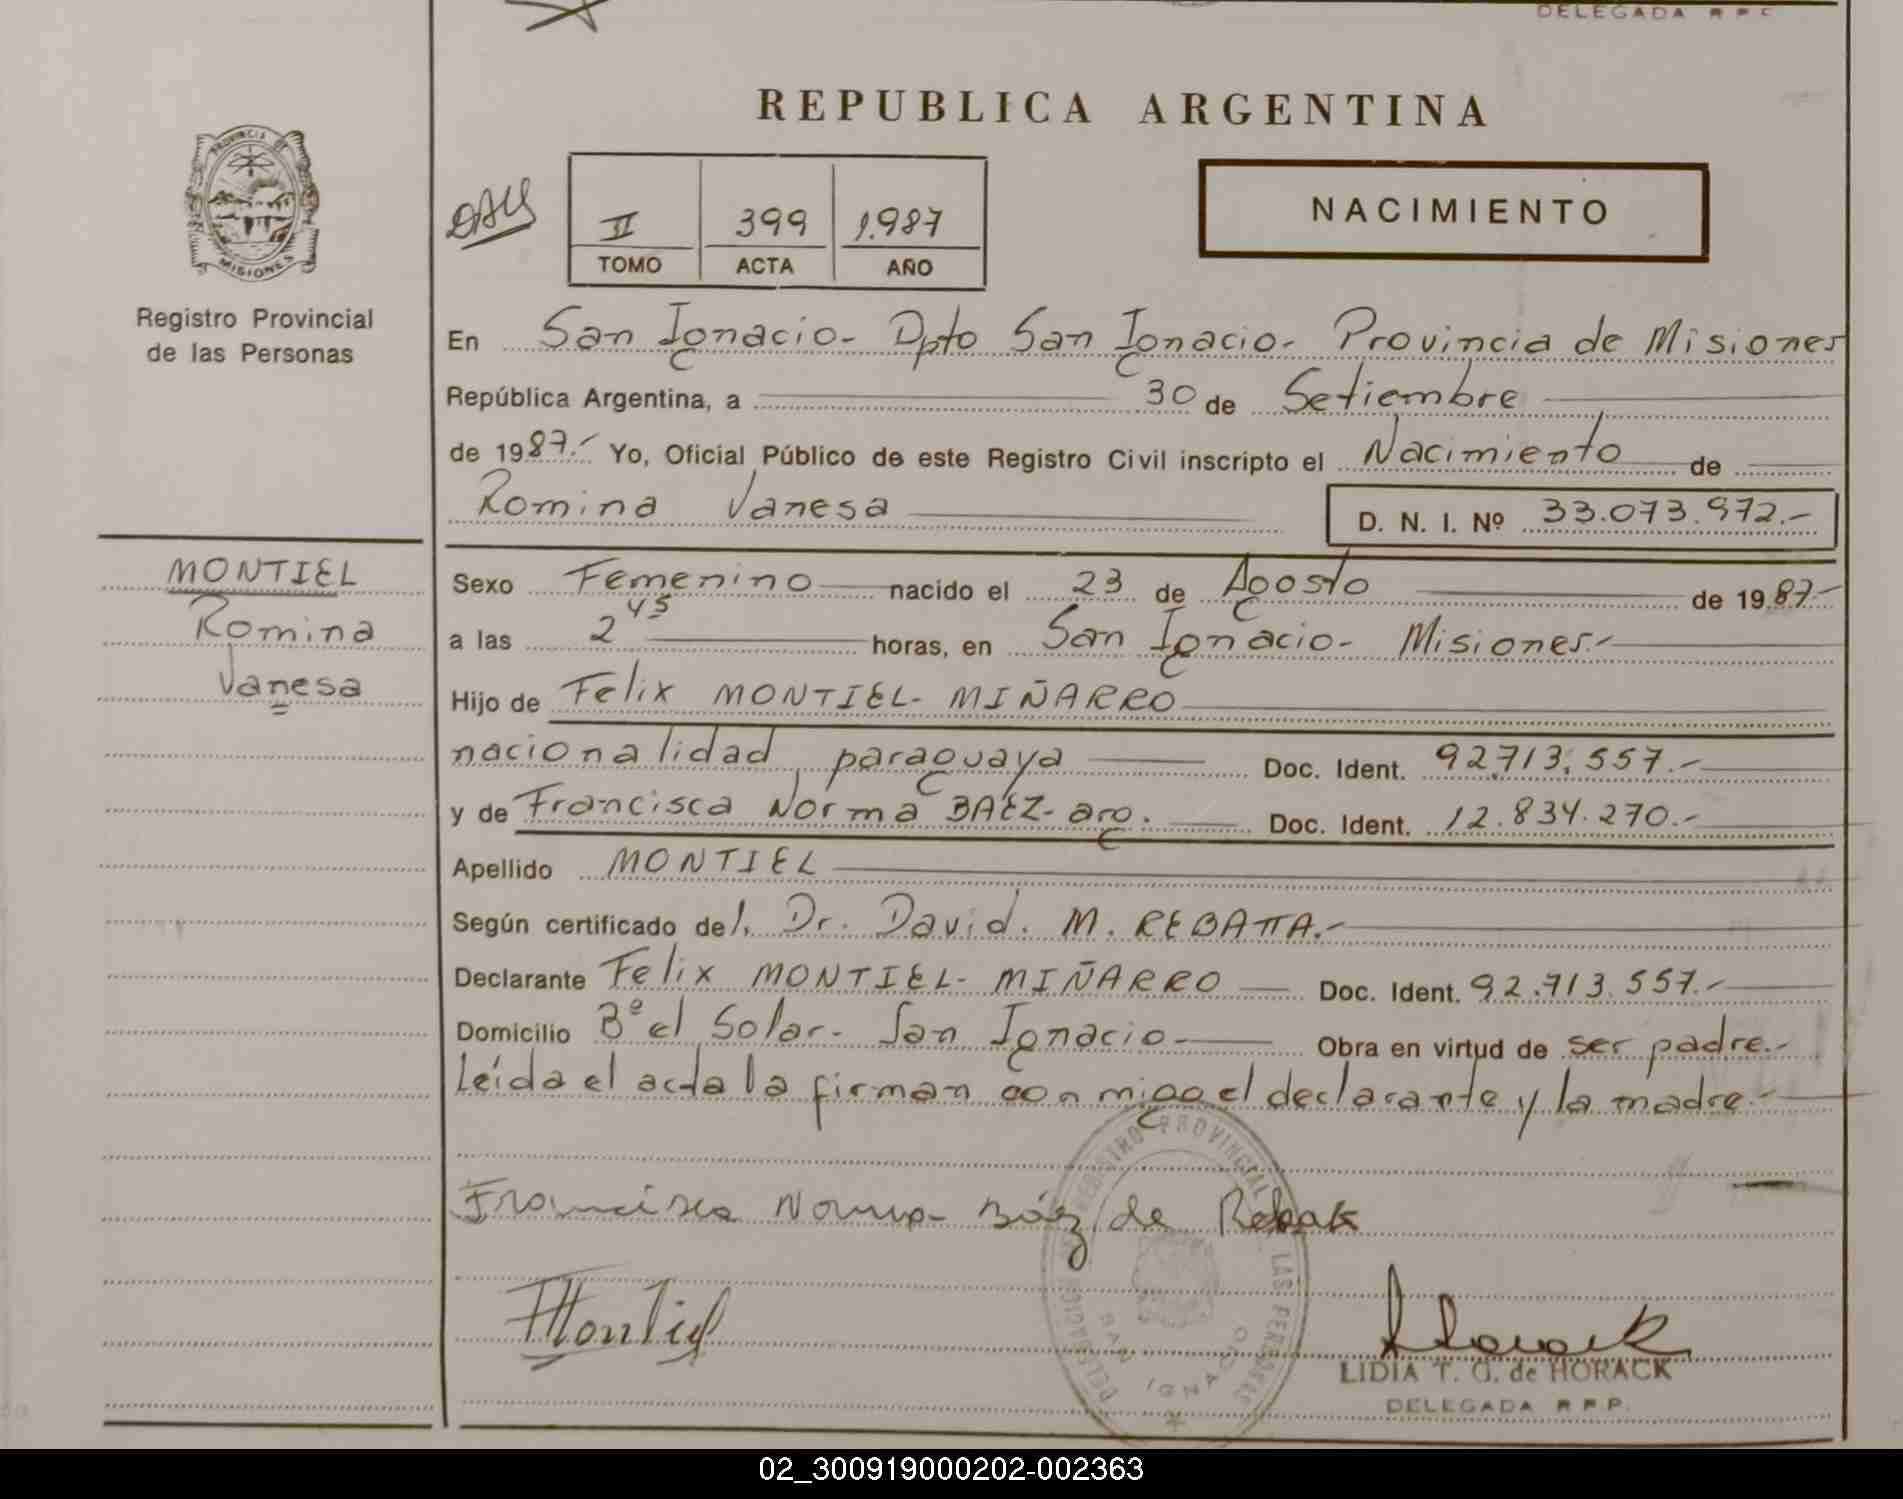 DELEGADA R P C
REPUBLICA ARGENTINA
PROVINCIA DE
MISIONES
Registro Provincial
de las Personas
II 399 1.987
TOMO ACTA AÑO
NACIMIENTO
En San Ignacio- Dpto San Ignacio- Provincia de Misiones
República Argentina, a 30 de Setiembre
de 1987.- Yo, Oficial Público de este Registro Civil inscripto el Nacimiento de
Romina Vanesa D. N. I. Nº 33.073.972.-
MONTIEL
Romina
Vanesa
Sexo Femenino nacido el 23 de Agosto de 1987-
a las 2 45 horas, en San Ignacio- Misiones.-
Hijo de Felix MONTIEL- MIÑARRO
nacionalidad paraguaya Doc. Ident. 92.713.557.-
y de Francisca Norma BAEZ- arg. Doc. Ident. 12.834.270.-
Apellido MONTIEL
Según certificado del, Dr. David. M. REBATTA.-
Declarante Felix MONTIEL- MIÑARRO Doc. Ident. 92.713.557.-
Domicilio Bº el Solar- San Ignacio- Obra en virtud de ser padre.-
Leída el acta la firman conmigo el declarante y la madre.-
Francisca Norma Báez de
FMontiel
Horack
LIDIA T. G. de HORACK
DELEGADA R P P.
REGISTRO PROVINCIAL LAS PERSONAS
DELEGACION
SAN IGNACIO
02_300919000202-002363